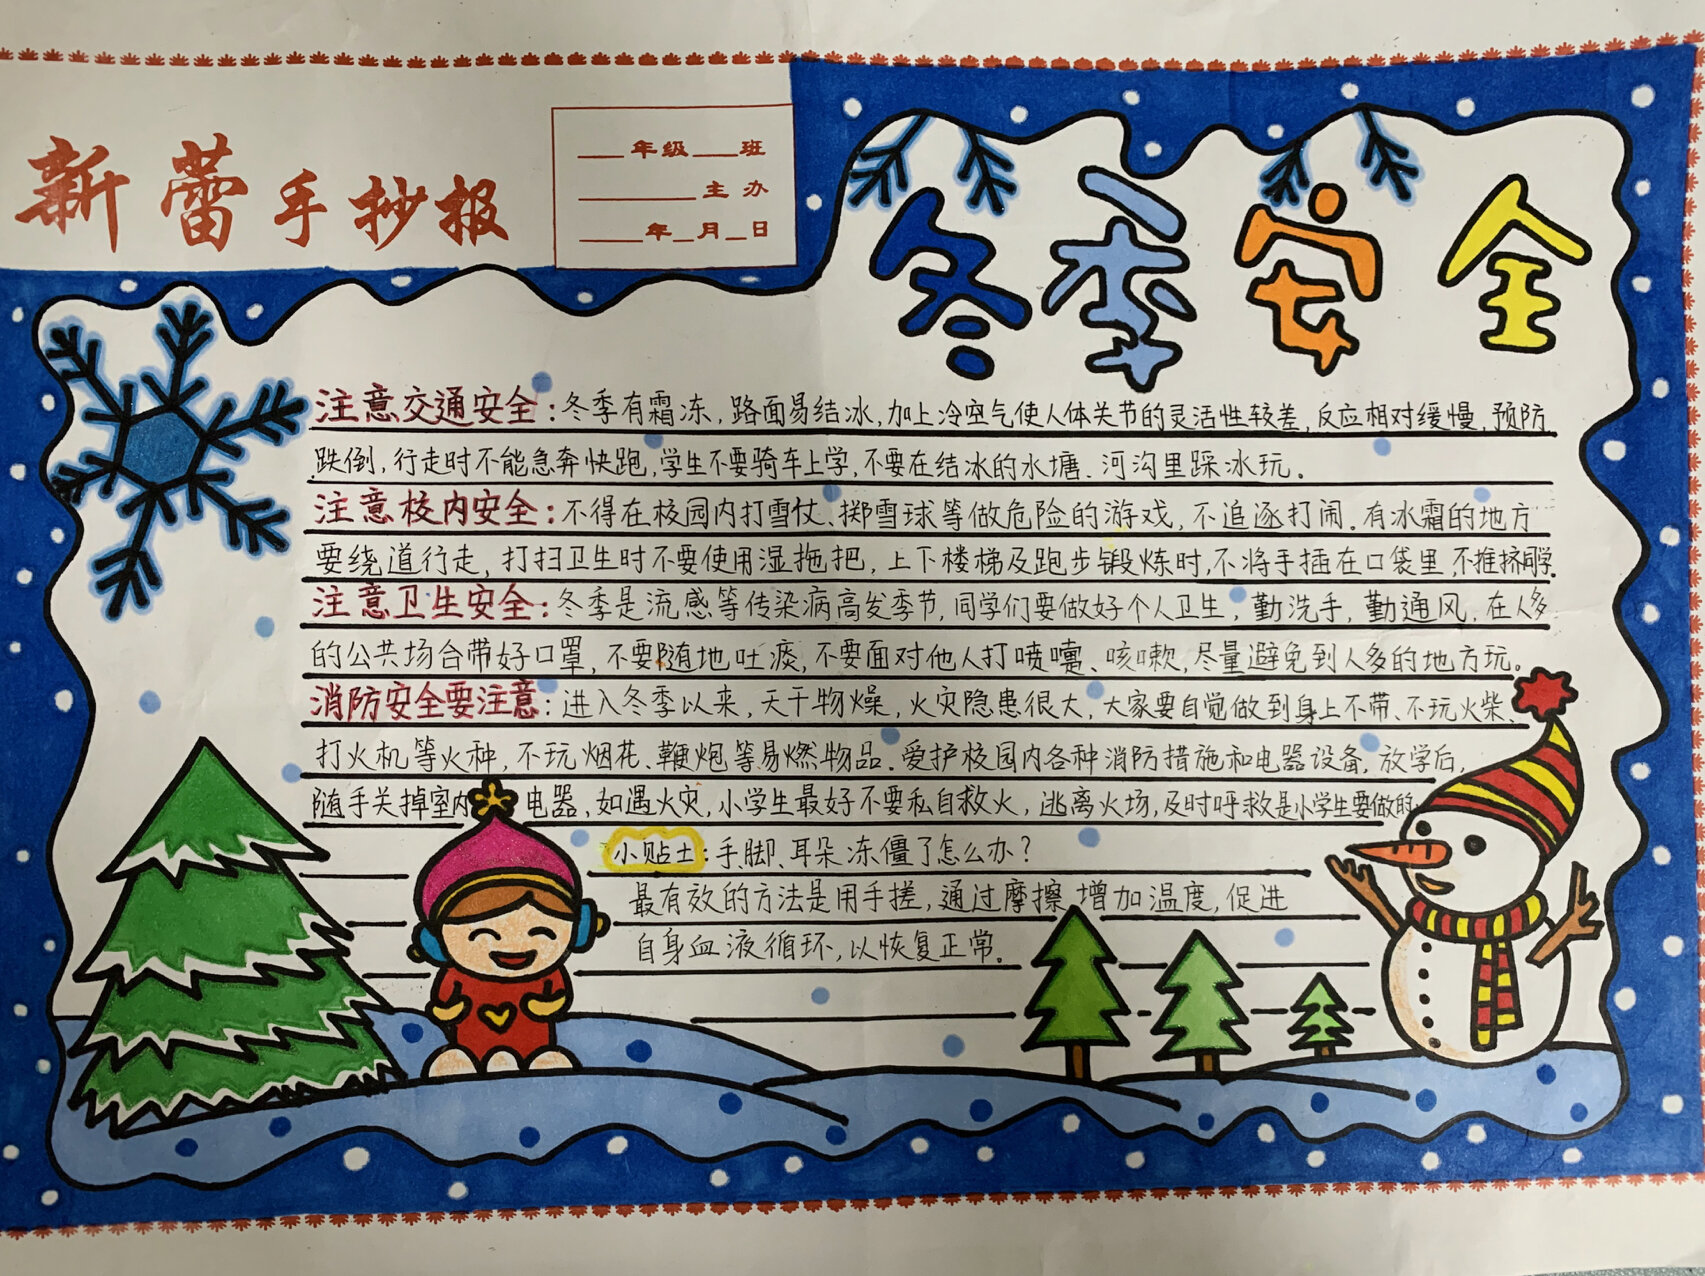 新蕾手抄报
___年级___班
________主办
____年_月_日
冬季安全
注意交通安全:冬季有霜冻,路面易结冰,加上冷空气使人体关节的灵活性较差,反应相对缓慢,预防
跌倒,行走时不能急奔快跑,学生不要骑车上学,不要在结冰的水塘、河沟里踩冰玩。
注意校内安全:不得在校园内打雪仗、掷雪球等做危险的游戏,不追逐打闹.有冰霜的地方
要绕道行走,打扫卫生时不要使用湿拖把,上下楼梯及跑步锻炼时,不将手插在口袋里,不推挤同学.
注意卫生安全:冬季是流感等传染病高发季节,同学们要做好个人卫生,勤洗手,勤通风,在人多
的公共场合带好口罩,不要随地吐痰,不要面对他人打喷嚏、咳嗽,尽量避免到人多的地方玩。
消防安全要注意:进入冬季以来,天干物燥,火灾隐患很大,大家要自觉做到身上不带、不玩火柴、
打火机等火种,不玩烟花、鞭炮等易燃物品.爱护校园内各种消防措施和电器设备,放学后,
随手关掉室内电器,如遇火灾,小学生最好不要私自救火,逃离火场,及时呼救是小学生要做的
小贴士:手、脚、耳朵冻僵了怎么办?
最有效的方法是用手搓,通过摩擦增加温度,促进
自身血液循环,以恢复正常.